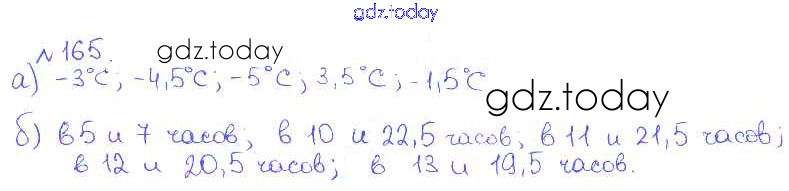 gdz.today
№ 165. gdz.today
а) -3°С; -4,5°С; -5°С; 3,5°С; -1,5°С
gdz.today
б) в 5 и 7 часов; в 10 и 22,5 часов; в 11 и 21,5 часов;
в 12 и 20,5 часов; в 13 и 19,5 часов.